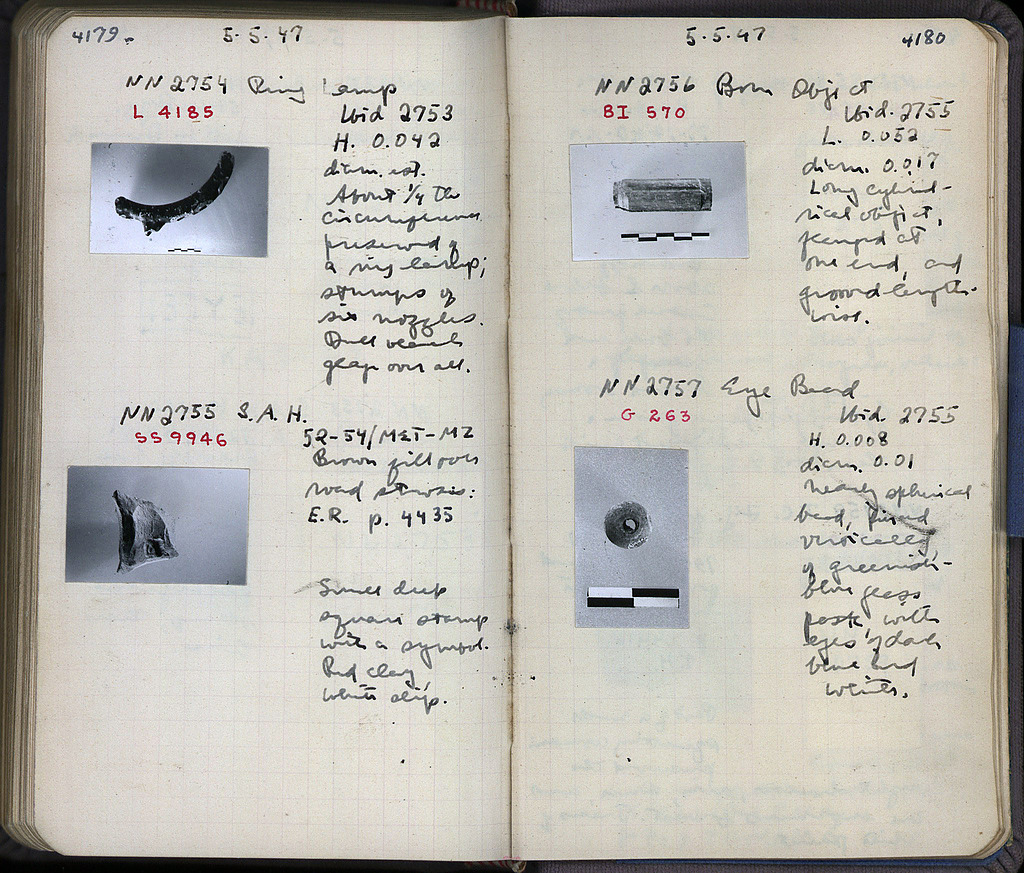 4179.
5.5.47
NN 2754 Ring Lamp
L 4185
Ibid 2753
H. 0.042
diam. est.
About 1/4 the
circumference
preserved of
a ring lamp;
stumps of
six nozzles.
Dull
glaze over all.
NN 2755 S.A.H.
SS 9946
52-54/ΜΣΤ-ΜΖ
Brown fill over
road strosis:
E.R. p. 4435
Small deep
square stamp
with a symbol.
Red clay,
white slip.
5.5.47
4180
NN 2756 Bone Object
BI 570
Ibid. 2755
L. 0.052
diam. 0.017
Long cylind-
rical object,
flanged at
one end, and
grooved length-
wise.
NN 2757 Eye Bead
G 263
Ibid. 2755
H. 0.008
diam. 0.01
Nearly spherical
bead, pierced
vertically,
of greenish-
blue glass
paste with
eyes of dark
blue and
white.